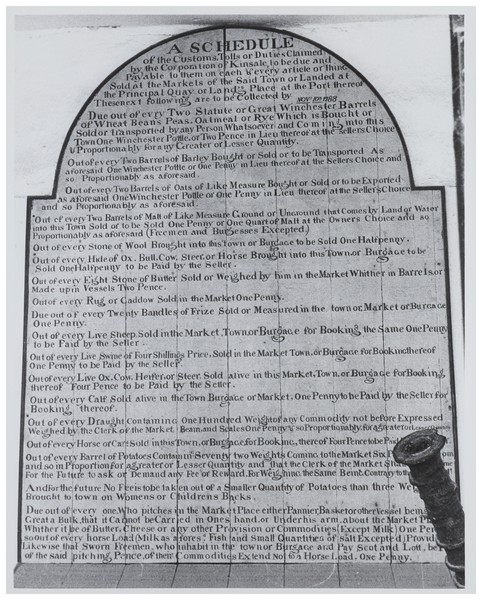 A SCHEDULE
of the Customs, Tolls or Duties Claimed
by the Corporation of Kinsale to be due and
Payable to them on each & every article or thing
Sold at the Markets of the Said Town or Landed at
the Principal Quay or Landg Place at the Port thereof
Thesenext following are to be Collected by
Due out of every Two Statute or Great Winchester Barrels
of Wheat Beans Peas, Oatmeal or Rye Which is Bought or
Sold or transported by any Person Whatsoever and Coming into this
Town One Winchester Pottle, or Two Pence in Lieu thereof at the Sellers Choice
& Proportionably for any Greater or Lesser Quantity.
Out of every Two Barrels of Barley Bought or Sold or to be Transported As
aforesaid One Winchester Pottle or One Penny in Lieu thereof at the Sellers Choice and
so Proportionably as aforesaid.
Out of every Two Barrels of Oats of Like Measure Bought or Sold or to be Exported
as aforesaid One Winchester Pottle or One Penny in Lieu thereof at the Seller's Choice
and so Proportionably as aforesaid.
Out of every Two Barrels of Malt of Like Measure Ground or Unground that Comes by Land or Water
into this Town Sold or to be Sold One Penny or One Quart of Malt at the Owners Choice and so
Proportionably as aforesaid (Freemen and Burgesses Excepted)
Out of every Stone of Wool Brought into this Town or Burgage to be Sold One Halfpenny.
Out of every Hide of Ox, Bull, Cow, Steer, or Horse Brought into this Town or Burgage to be
Sold One Halfpenny to be Paid by the Seller.
Out of every Eight Stone of Butter Sold or Weighed by him in the Market Whither in Barrels, or
Made up in Vessels Two Pence.
Out of every Rug or Caddow Sold in the Market One Penny.
Due out of every Twenty Bandles of Frize Sold or Measured in the town or Market or Burgage
One Penny.
Out of every Live Sheep Sold in the Market Town or Burgage for Booking the Same One Penny
to be Paid by the Seller.
Out of every Live Swine of Four Shillings Price, Sold in the Market Town, or Burgage for Booking thereof
One Penny to be Paid by the Seller.
Out of every Live Ox, Cow, Heifer or Steer, Sold alive in this Market, Town, or Burgage for Booking,
thereof Four Pence to be Paid by the Seller.
Out of every Calf Sold alive in the Town Burgage or Market, One Penny to be Paid by the Seller for
Booking thereof.
Out of every Draught Containing One Hundred Weight of any Commodity not before Expressed
Weighed by the Clerk of the Market, Beam and Scales One Penny & so Proportionably for a greater or Lesser
Out of every Horse or Care Sold in this Town, or Burgage for Booking, thereof Four Pence to be Paid
Out of every Barrel of Potatoes Containing Seventy two Weights Coming to the Market Six
and so in Proportion for a greater or Lesser Quantity and that the Clerk of the Market
For the Future to ask or Demand any Fee or Reward, for Weighing the Same Being
And for the future No Fee is to be taken out of a Smaller Quantity of Potatoes than three
Brought to town on Womens or Childrens Backs.
Due out of every one, Who pitches in the Market Place either Pannier, Basket or other Vessel
Great a Bulk, that it Cannot be Carried in Ones hand, or Under his arm, about the Market
Whither it be of Butter, Cheese or any other Provision or Commodities (Except Milk) One
so out of every horse Load (Milk as afores.d Fish and Small Quantities of salt Excepted)
Likewise that Sworn Freemen, who inhabit in the town or Burgage and Pay Scot and Lott, be
of the said pitching Pence, of their Commodities Extend No to a Horse Load, One Penny.